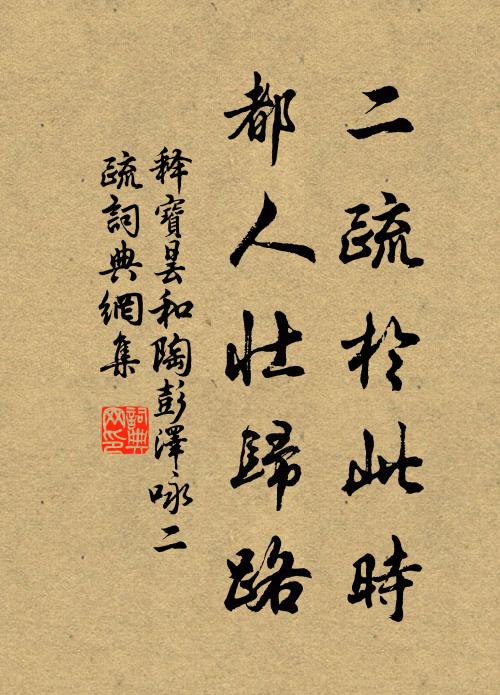 二疏於此時
都人壯歸路
释寶曇和陶彭澤咏二
疏詞典網集
詞典网印